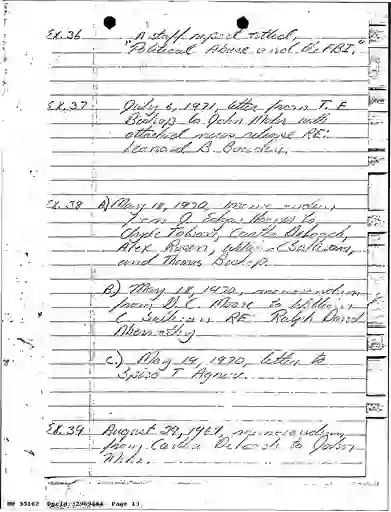 EX.36 "A staff report titled,
Political Abuse and the FBI,"
EX.37 July 6, 1971, letter from T. E
Bishop to John Mohr with
attached news release RE:
Leonard B.
EX.38 A) May 18, 1970,
from J. Edgar Hoover to
Clyde Tolson, Cartha DeLoach,
Alex Rosen, Sullivan,
and Thomas Bishop.
B) May 18, 1970, memorandum
from G. C. Moore to William
C Sullivan RE Ralph David
Abernathy
C.) May 19, 1970, letter to
Spiro T Agnew.
EX.39 August 29, 1964, memorandum
from Cartha DeLoach to John
Mohr.
HW 55162 DocId:32989484 Page 13